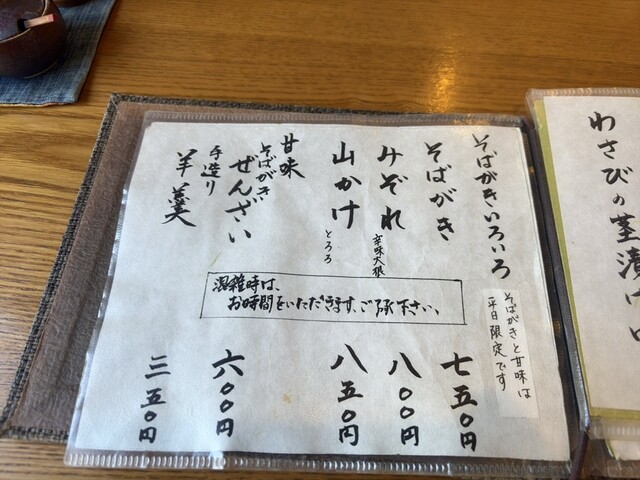 そばがきいろいろ
そばがきと甘味は
平日限定です
そばがき 七五〇円
みぞれ 辛味大根 八〇〇円
山かけ とろろ 八五〇円
甘味
そばがき
ぜんざい 六〇〇円
手造り
羊羹 三五〇円
混雑時は、
お時間をいただきます、ご了承下さい。
わさびの茎漬け